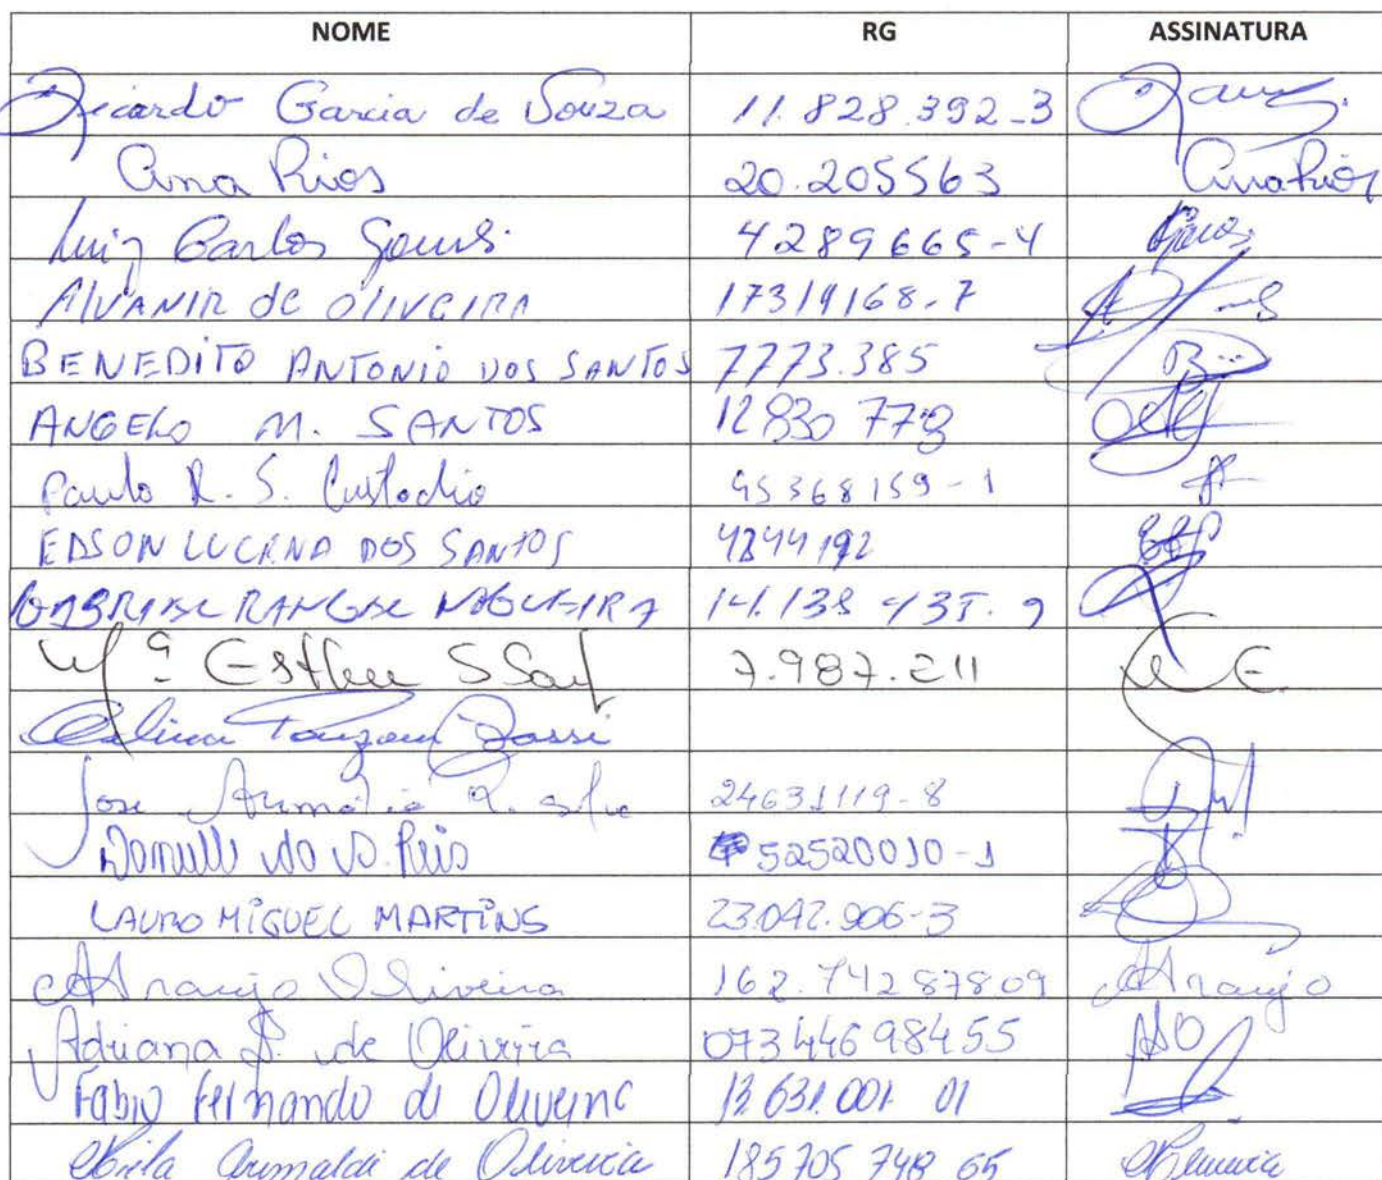 NOME RG ASSINATURA
Ricardo Garcia de Souza 11.828.392-3
Ana Rios 20.205563 Ana Rios
Luiz Carlos Gomes 4289665-4
AlVANIR de OlIVEIRA 17319168-7
BENEDITO ANTONIO DOS SANTOS 7773.385
ANGELO M. SANTOS 12830778
Paulo R. S. Custodio 45368159-1
EDSON LUCENA DOS SANTOS 4844192
GABRIEL RANGEL NOGUEIRA 14.138 435.9
Mª Esther S 7.987.211 M E.
Bassi
Jose A. Silva 24631119-8
Danielle do S. Reis 52520010-1
LAURO MIGUEL MARTINS 23.042.906-3
Araujo Oliveira 162.742 878 09 Araujo
Adriana S. de Oliveira 073446 984 55 ASO
Fabio Fernando de Oliveira 13.631.001 01
de Oliveira 185 705 748 65